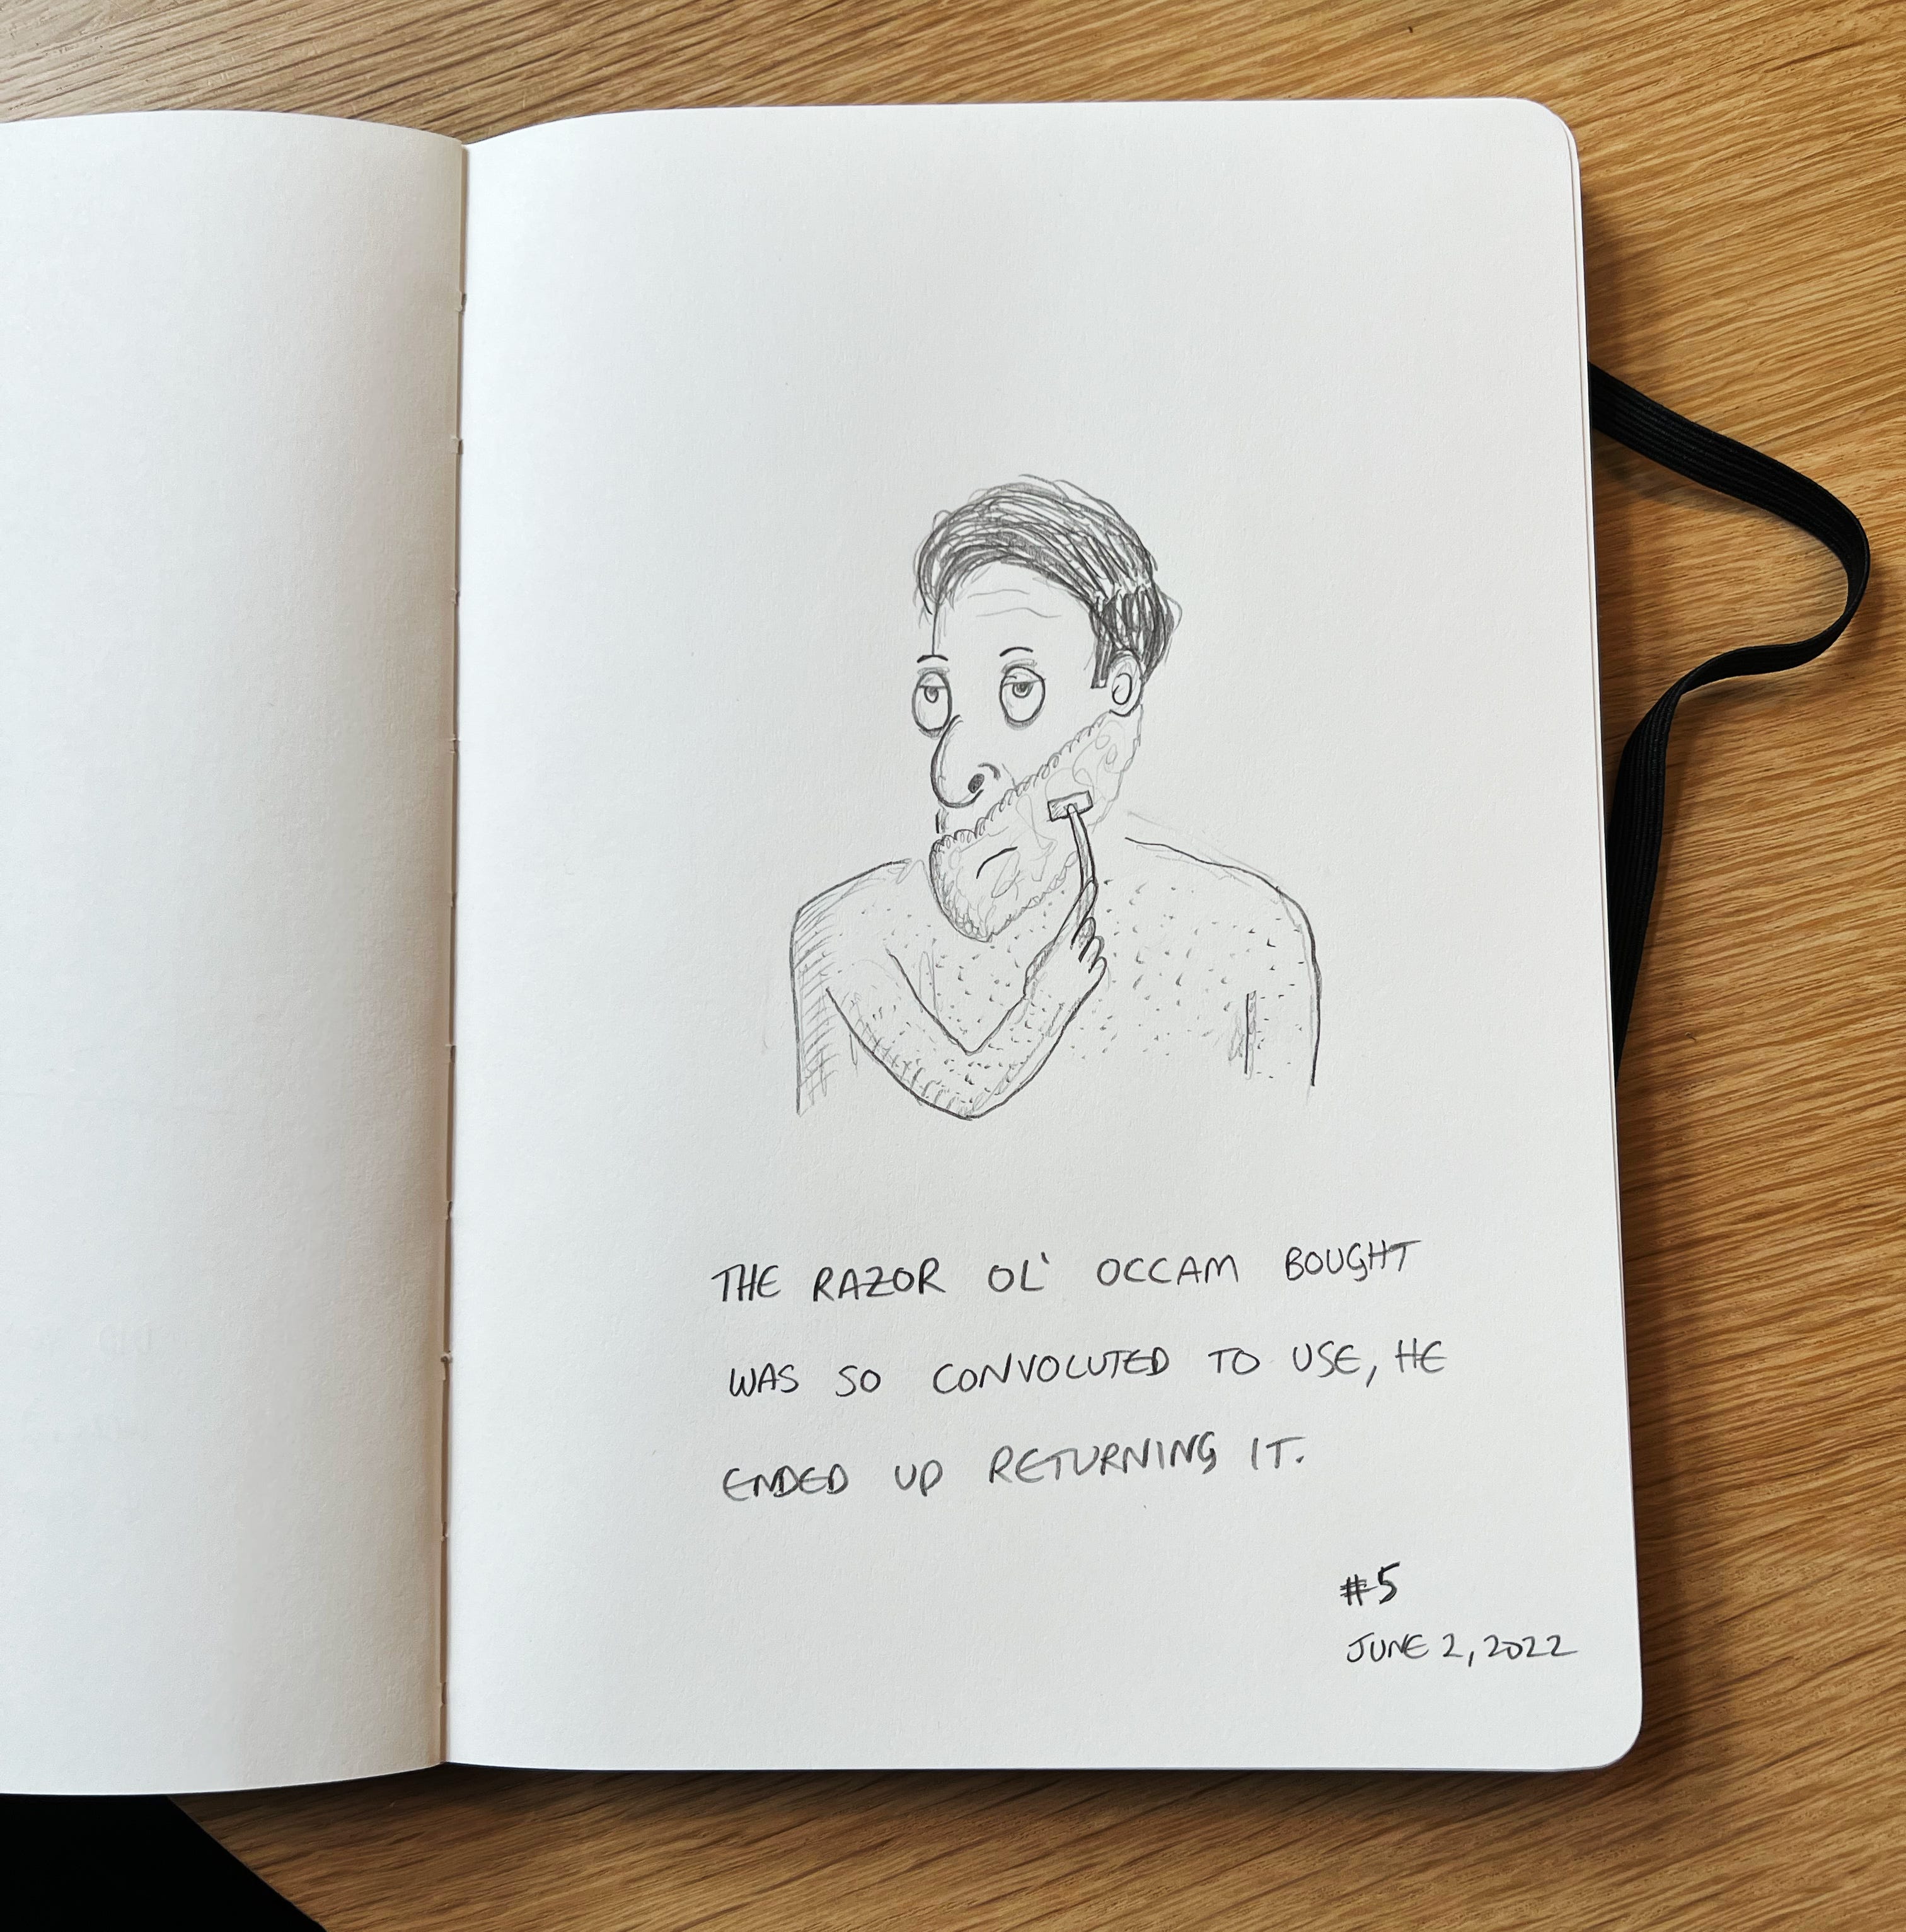 THE RAZOR OL' OCCAM BOUGHT
WAS SO CONVOLUTED TO USE, HE
ENDED UP RETURNING IT.
#5
JUNE 2, 2022